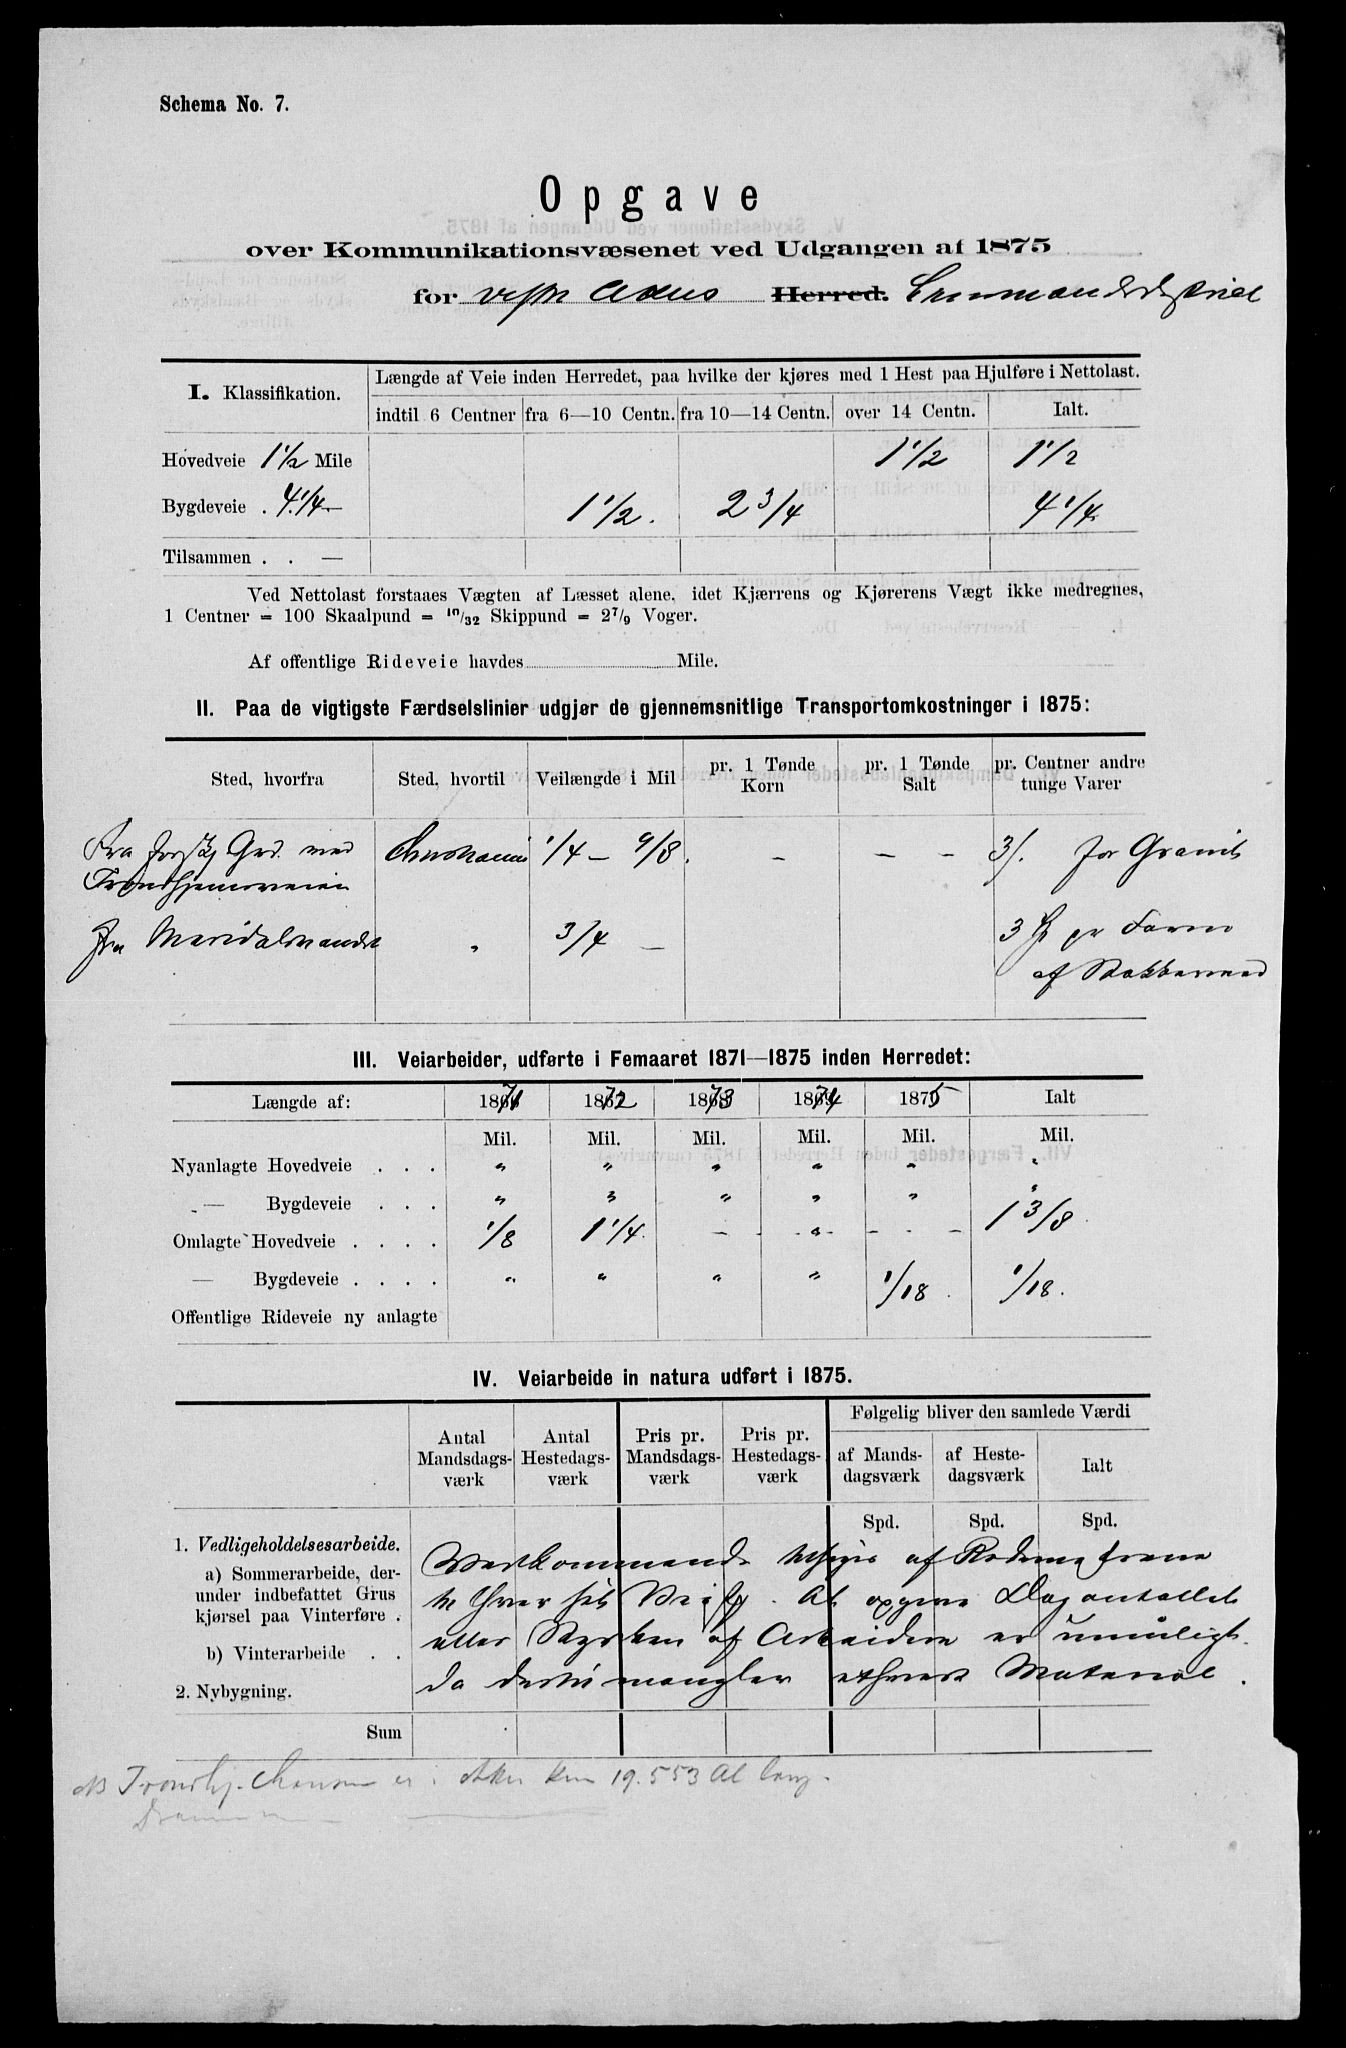 Schema No. 7.
Opgave
over Kommunikationsvæsenet ved Udgangen af 1875
for vestre Akers Herred. Lensmandsdistrikt
I. Klassifikation. Længde af Veie inden Herredet, paa hvilke der kjøres med 1 Hest paa Hjulføre i Nettolast.
indtil 6 Centner fra 6—10 Centn. fra 10—14 Centn. over 14 Centn. Ialt.
Hovedveie 1 1/2 Mile 1 1/2 1 1/2
Bygdeveie . 4 1/4 — 1 1/2. 2 3/4 4 1/4.
Tilsammen . . —
Ved Nettolast forstaaes Vægten af Læsset alene, idet Kjærrens og Kjørerens Vægt ikke medregnes,
1 Centner = 100 Skaalpund = 10/32 Skippund = 2 7/9 Voger.
Af offentlige Rideveie havdes Mile.
II. Paa de vigtigste Færdselslinier udgjør de gjennemsnitlige Transportomkostninger i 1875:
Sted, hvorfra Sted, hvortil Veilængde i Mil pr. 1 Tønde Korn pr. 1 Tønde Salt pr. Centner andre tunge Varer
Fra forskj Grd. ved Christiania 1/4 — 9/8. - - - 3/. for Granit
Trondhjemsveien
fra Maridalsvandet " 3/4 — 3 pr Favn
af Bakkeved
III. Veiarbeider, udførte i Femaaret 1871—1875 inden Herredet:
Længde af: 1871 1872 1873 1874 1875 Ialt
Mil. Mil. Mil. Mil. Mil. Mil.
Nyanlagte Hovedveie . . . " " " " " "
— Bygdeveie . . . " " " " " "
Omlagte Hovedveie . . . . 1/8 1 1/4. - - " - - - 1 3/8
— Bygdeveie . . . . " " " " 1/18. 1/18.
Offentlige Rideveie ny anlagte
IV. Veiarbeide in natura udført i 1875.
Følgelig bliver den samlede Værdi
Antal Mandsdagsværk Antal Hestedagsværk Pris pr. Mandsdagsværk Pris pr. Hestedagsværk af Mandsdagsværk af Hestedagsværk Ialt
Spd. Spd. Spd.
1. Vedligeholdelsesarbeide.
a) Sommerarbeide, der-
under indbefattet Grus
kjørsel paa Vinterføre .
b) Vinterarbeide . .
2. Nybygning.
Vedkommende af Roderne
hver sit . At opgive Dagantallet
eller Styrken af Arbeidere er umuligt
da dertil mangler ethvert Materiale.
Sum
NB Trondhj. Chausse er i Aker kun 19.553 Al lang.